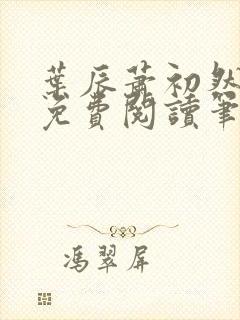 葉辰蕭初然
免費閱讀筆
馮翠屏